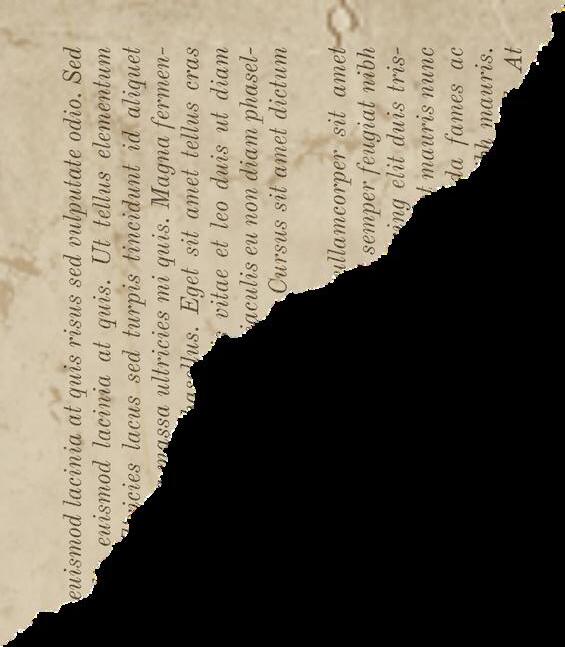 euismod lacinia at quis risus sed vulputate odio. Sed
euismod lacinia at quis. Ut tellus elementum
lacus sed turpis tincidunt id aliquet
massa ultricies mi quis. Magna fermen-
Eget sit amet tellus cras
vitae et leo duis ut diam
iaculis eu non diam phasel-
Cursus sit amet dictum
sit amet
semper feugiat nibh
elit duis tris-
mauris nunc
fames ac
mauris. At